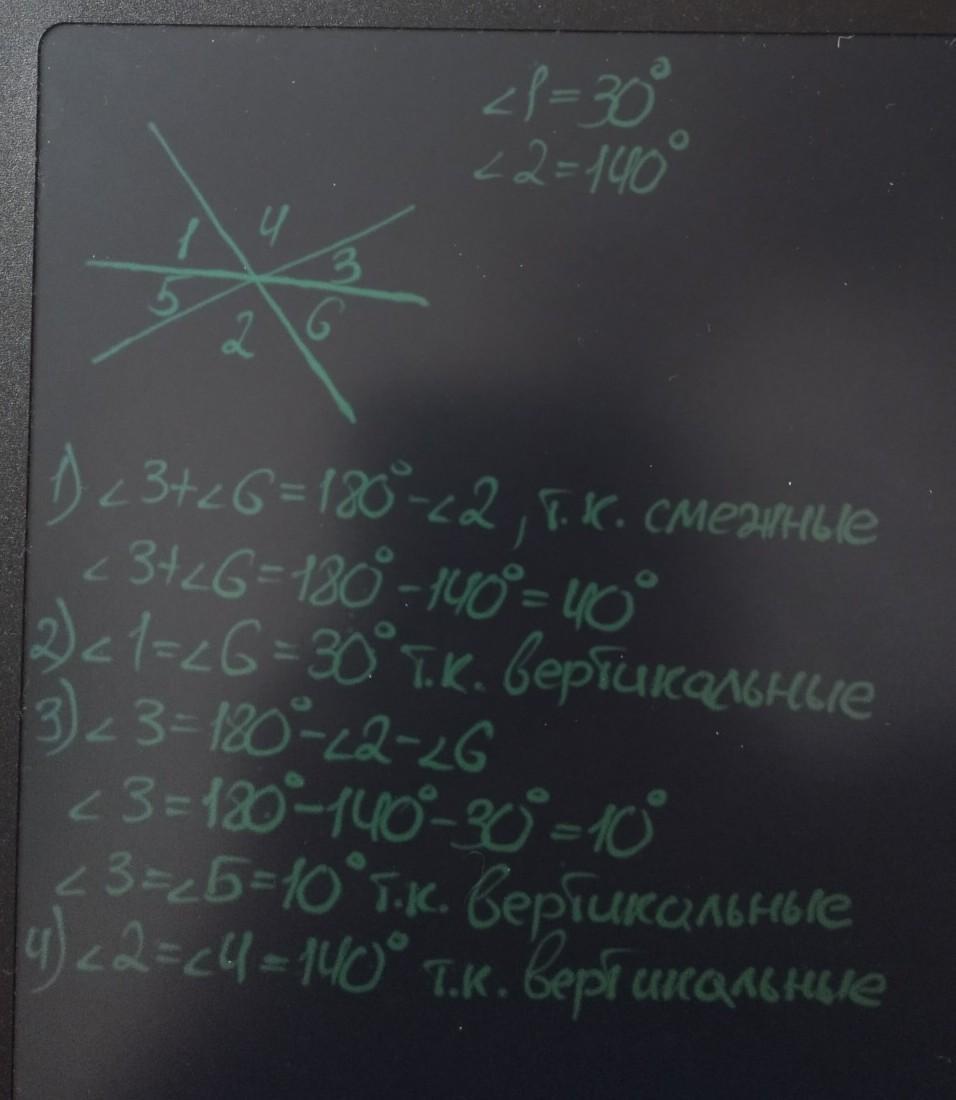 ∠1=30°
∠2=140°
4
1
3
5
2
6
1) ∠3+∠6=180°-∠2, т.к. смежные
∠3+∠6=180°-140°=40°
2) ∠1=∠6=30° т.к. вертикальные
3) ∠3=180°-∠2-∠6
∠3=180°-140°-30°=10°
∠3=∠5=10° т.к. вертикальные
4) ∠2=∠4=140° т.к. вертикальные